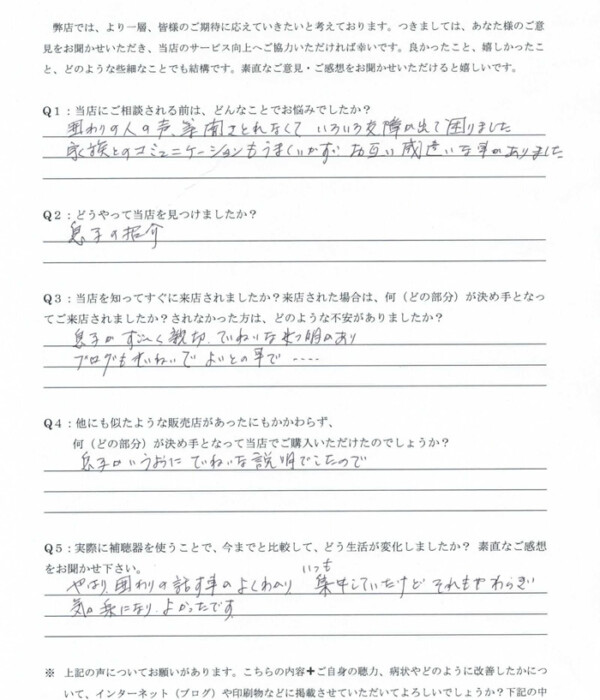 弊店では、より一層、皆様のご期待に応えていきたいと考えております。つきましては、あなた様のご意
見をお聞かせいただき、当店のサービス向上へご協力いただければ幸いです。良かったこと、嬉しかったこ
と、どのような些細なことでも結構です。素直なご意見・ご感想をお聞かせいただけると嬉しいです。
Q1：当店にご相談される前は、どんなことでお悩みでしたか？
囲わりの人の声、等聞きとれなくて いろいろ支障が出て困りました
家族とのコミュニケーションもうまくいかず お互い 感違いな事がありました
Q2：どうやって当店を見つけましたか？
息子の紹介
Q3：当店を知ってすぐに来店されましたか？来店された場合は、何（どの部分）が決め手となっ
てご来店されましたか？されなかった方は、どのような不安がありましたか？
息子が すごく親切、ていねいな説明があり
ブログもていねいで よいとの事で ‥‥
Q4：他にも似たような販売店があったにもかかわらず、
何（どの部分）が決め手となって当店でご購入いただけたのでしょうか？
息子がいうように ていねいな説明でしたので
Q5：実際に補聴器を使うことで、今までと比較して、どう生活が変化しましたか？ 素直なご感想
をお聞かせ下さい。
いつも
やはり 囲わりの話す事がよくわかり 集中していたけど それもやわらぎ
気が楽になり、よかったです
※ 上記の声についてお願いがあります。こちらの内容＋ご自身の聴力、病状やどのように改善したかにつ
いて、インターネット（ブログ）や印刷物などに掲載させていただいてよろしいでしょうか？下記の中